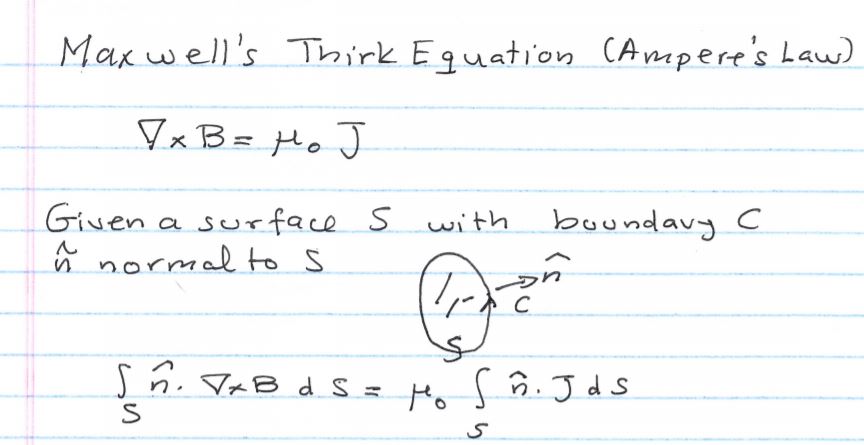 Maxwell's Thirk Equation (Ampere's Law)
∇×B = μ₀ J
Given a surface S with boundary C
ñ normal to S
n̂
C
S
∫_S n̂ · ∇×B dS = μ₀ ∫_S n̂ · J dS